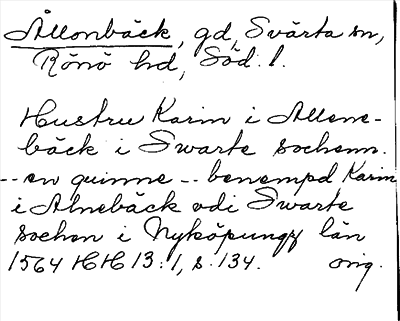 Ållonbäck, gd, Svärta sn,
Rönö hd, Söd. l.
Hustru Karin i Allone-
bäck i Swarte sochenn.
-- en quinne -- benempd Karin
i Alnebäck vdi Swarte
sochen i Nyköpungz län
1564 HH 13:1, s. 134. orig.